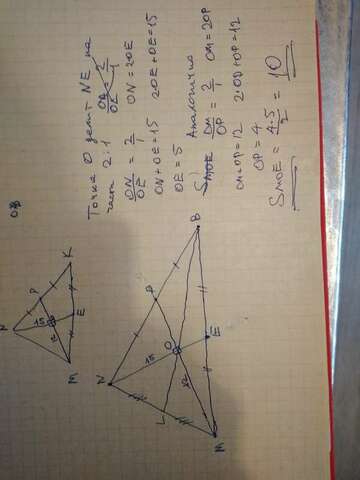 Точка О делит NE на
части 2:1
OD/OE 2/1
ON/OE = 2/1 ON = 2OE
ON + OE = 15 2OE + OE = 15
OE = 5
Аналогично
SMOE OM/OP = 2/1 OM = 2OP
OM + OP = 12 2·OD + OP = 12
OP = 4
SMOE = 4·5/2 = 10
N
P
K
15
12
E
M
N
P
B
15
O
12
E
L
M